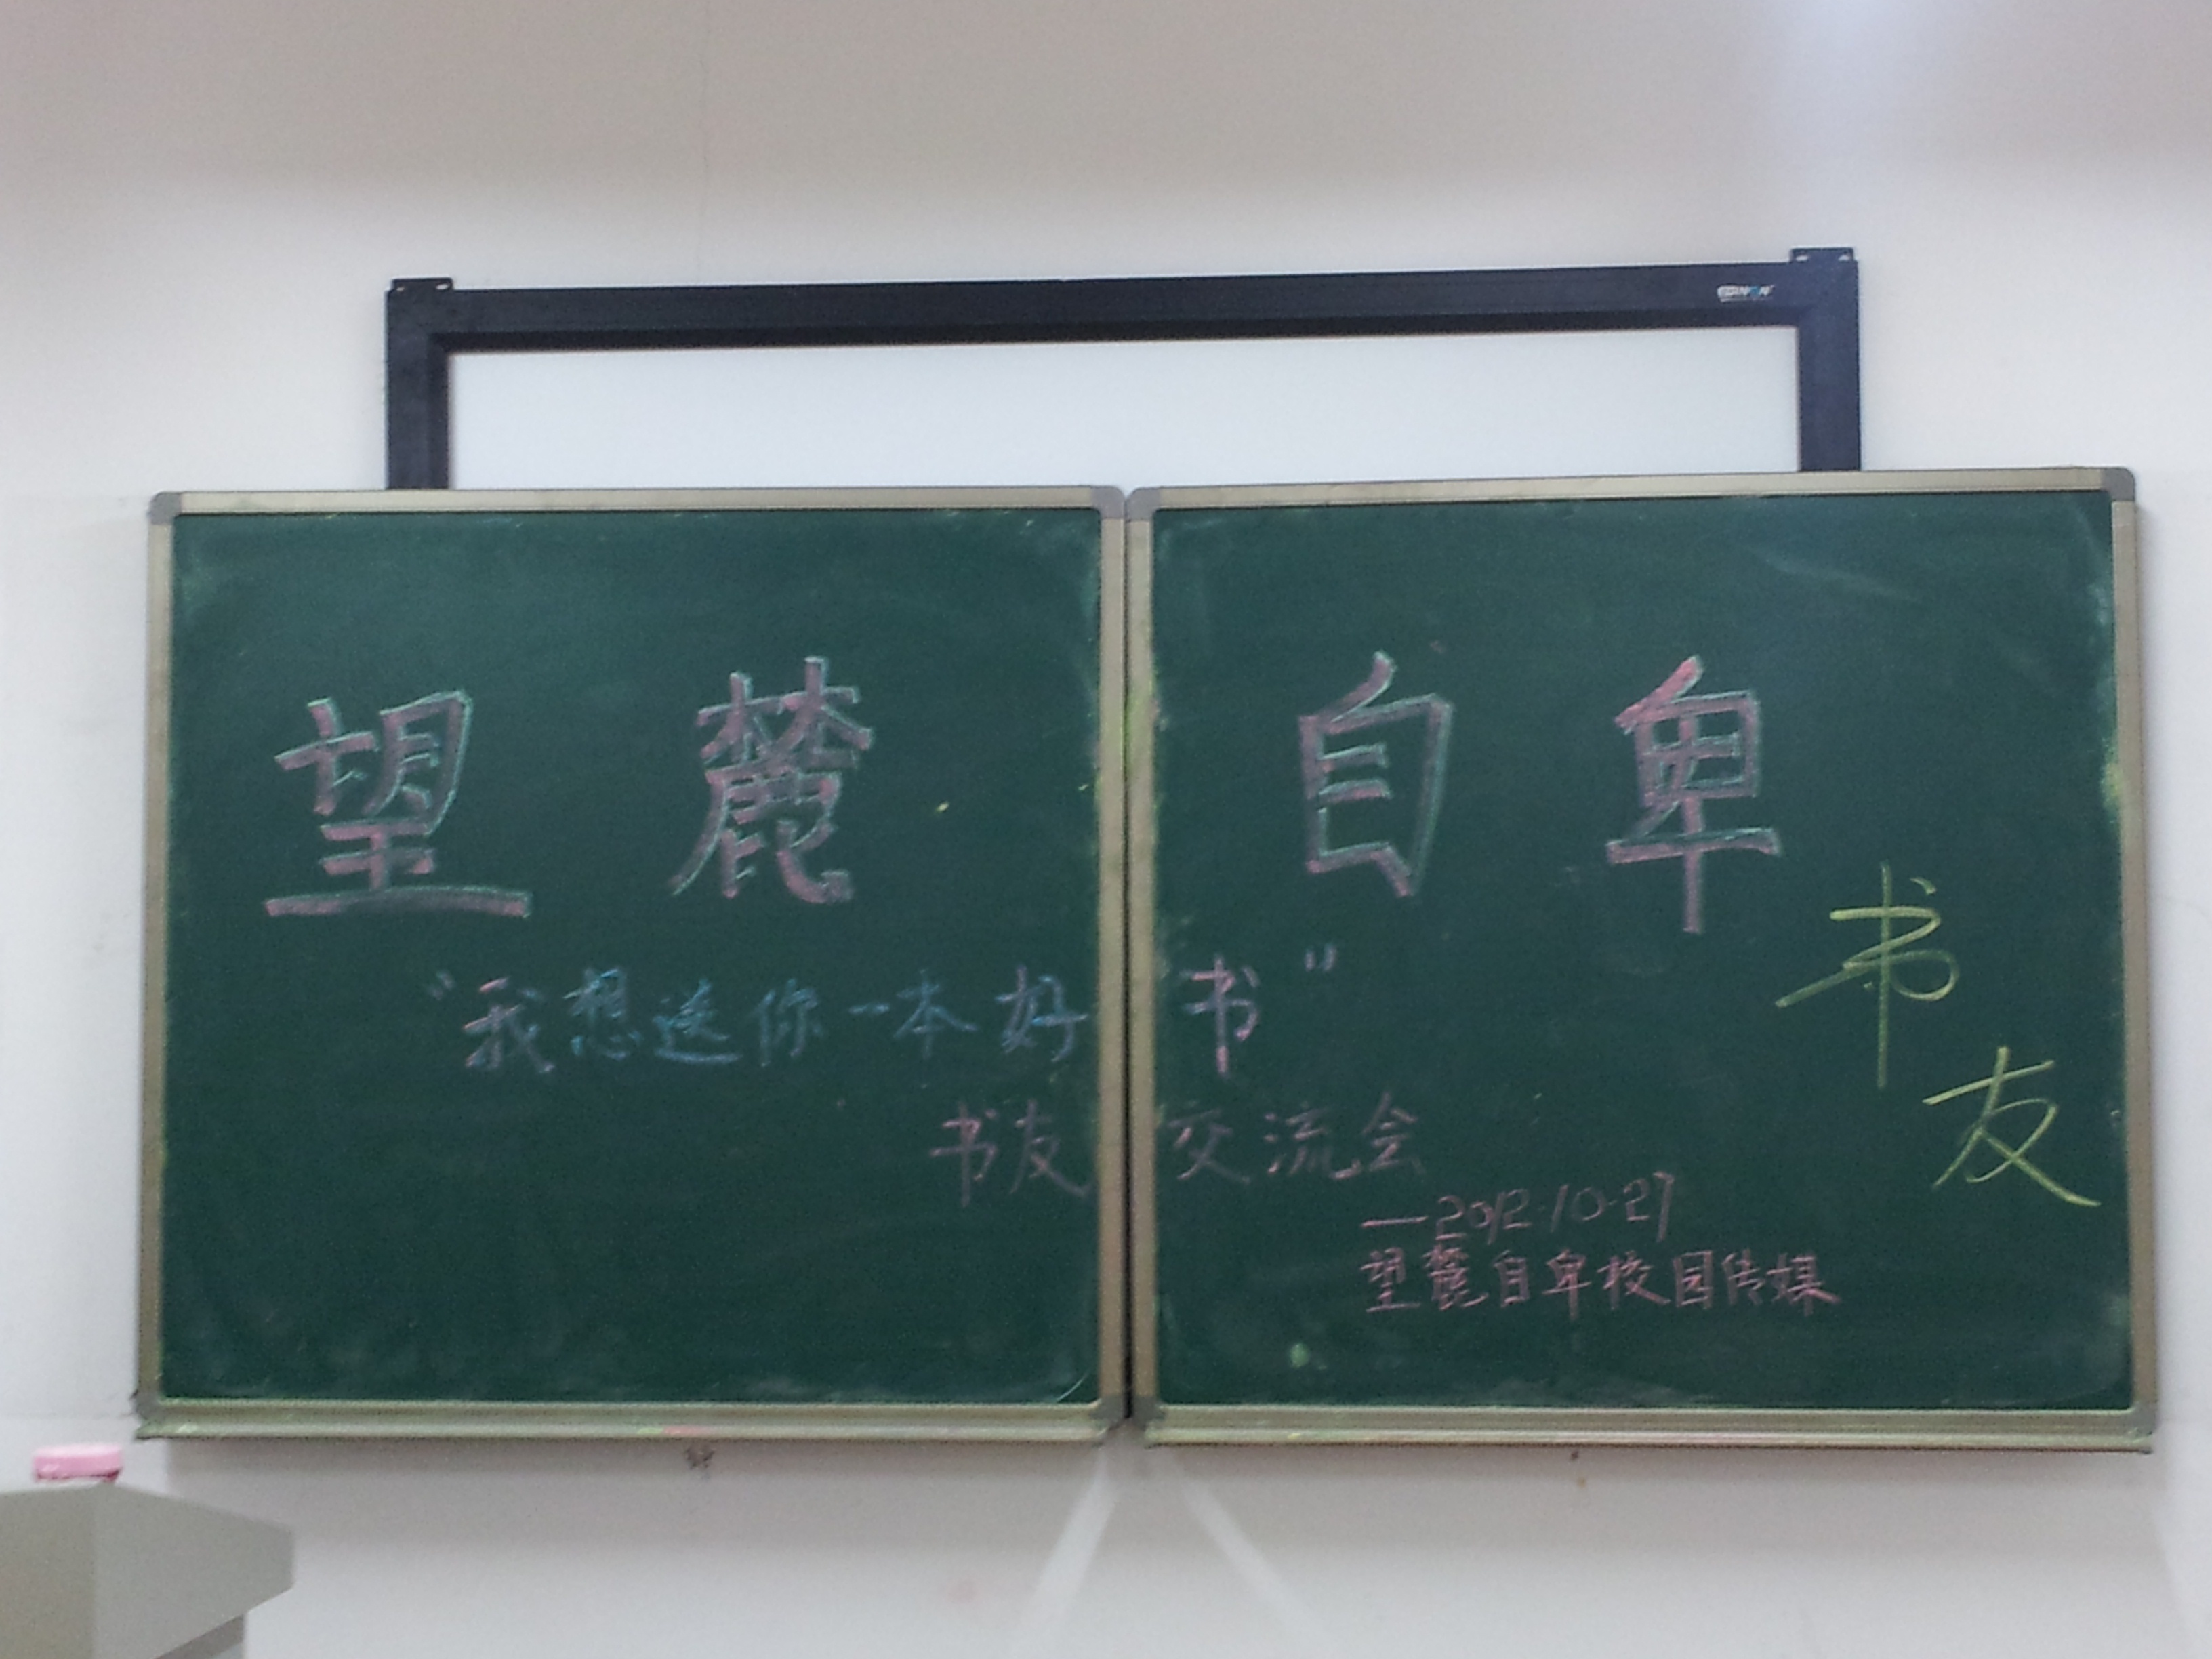 望麓自卑
书友
“我想送你一本好书”
书友交流会
—2012·10·27
望麓自卑校园传媒